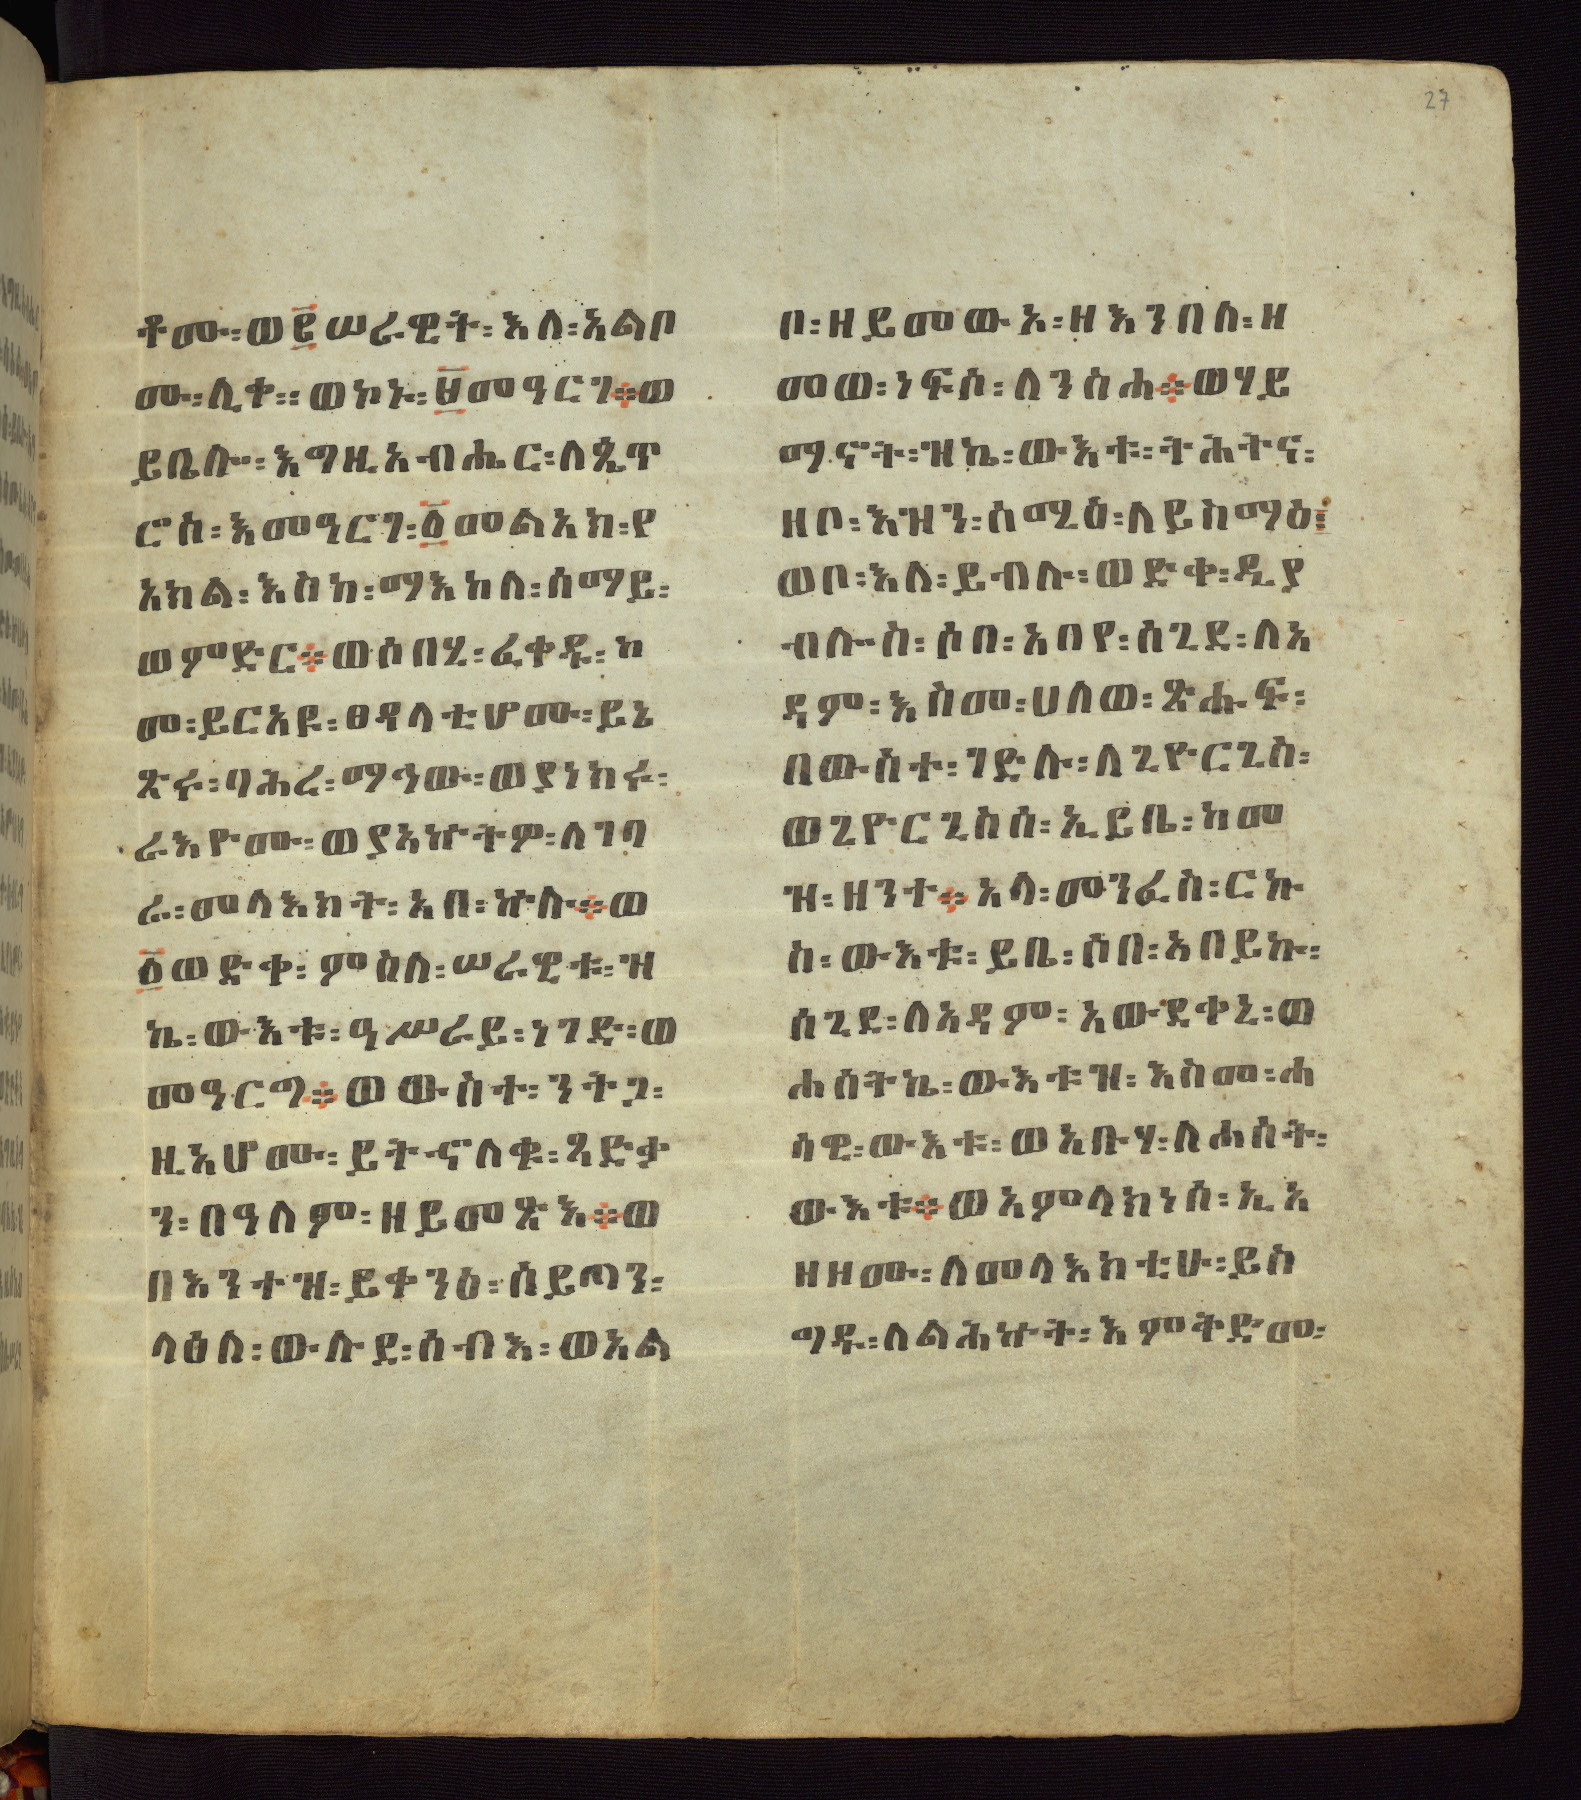 27
ቶሙ፡ወ፪ሠራዊት፡እለ፡አልቦ
ሙ፡ሊቀ፡፡ወኮኑ፡፱መዓርገ፨ወ
ይቤሉ፡እግዚአብሔር፡ለጴጥ
ሮስ፡እመዓርገ፡፩መልአክ፡የ
አክል፡እስከ፡ማእከለ፡ሰማይ፡
ወምድር፨ወሶበሂ፡ፈቀዱ፡ከ
መ፡ይርአዩ፡ፀዳላቲሆሙ፡ይኔ
ጽሩ፡ባሕረ፡ማኅው፡ወያነክሩ፡
ራእዮሙ፡ወያአኵትዎ፡ለገባ
ሬ፡መላእክት፡አበ፡ኵሉ፨ወ
፩ወድቀ፡ምስለ፡ሠራዊቱ፡ዝ
ኬ፡ውእቱ፡ዓሥራይ፡ነገድ፡ወ
መዓርግ፨ወውስተ፡ንትጋ፡
ዚአሆሙ፡ይትኖለቁ፡ጻድቃ
ን፡በዓለም፡ዘይመጽእ፨ወ
በእንተዝ፡ይቀንዕ፡ሰይጣን፡
ላዕለ፡ውሉደ፡ሰብእ፡ወአል
ቦ፡ዘይመውእ፡ዘእንበለ፡ዘ
መወ፡ነፍሶ፡ለንስሐ፨ወሃይ
ማኖት፡ዝኬ፡ውእቱ፡ትሕትና፡
ዘቦ፡እዝን፡ሰሚዕ፡ለይስማዕ፤
ወቦ፡እለ፡ይብሉ፡ወድቀ፡ዲያ
ብሎስ፡ሶበ፡አበየ፡ሰጊደ፡ለአ
ዳም፡እስመ፡ሀለወ፡ጽሑፍ፡
በውስተ፡ገድሉ፡ለጊዮርጊስ፡
ወጊዮርጊስሰ፡ኢይቤ፡ከመ
ዝ፡ዘንተ፨አላ፡መንፈስ፡ርኩ
ስ፡ውእቱ፡ይቤ፡ሶበ፡አበይኩ፡
ሰጊደ፡ለአዳም፡አውደቀኒ፡ወ
ሐሰትኬ፡ውእቱዝ፡እስመ፡ሐ
ሳዊ፡ውእቱ፡ወአቡሃ፡ለሐሰት፡
ውእቱ፨ወአምላክነሰ፡ኢአ
ዘዞሙ፡ለመላእክቲሁ፡ይስ
ግዱ፡ለልሕኵት፡እምቅድመ፡